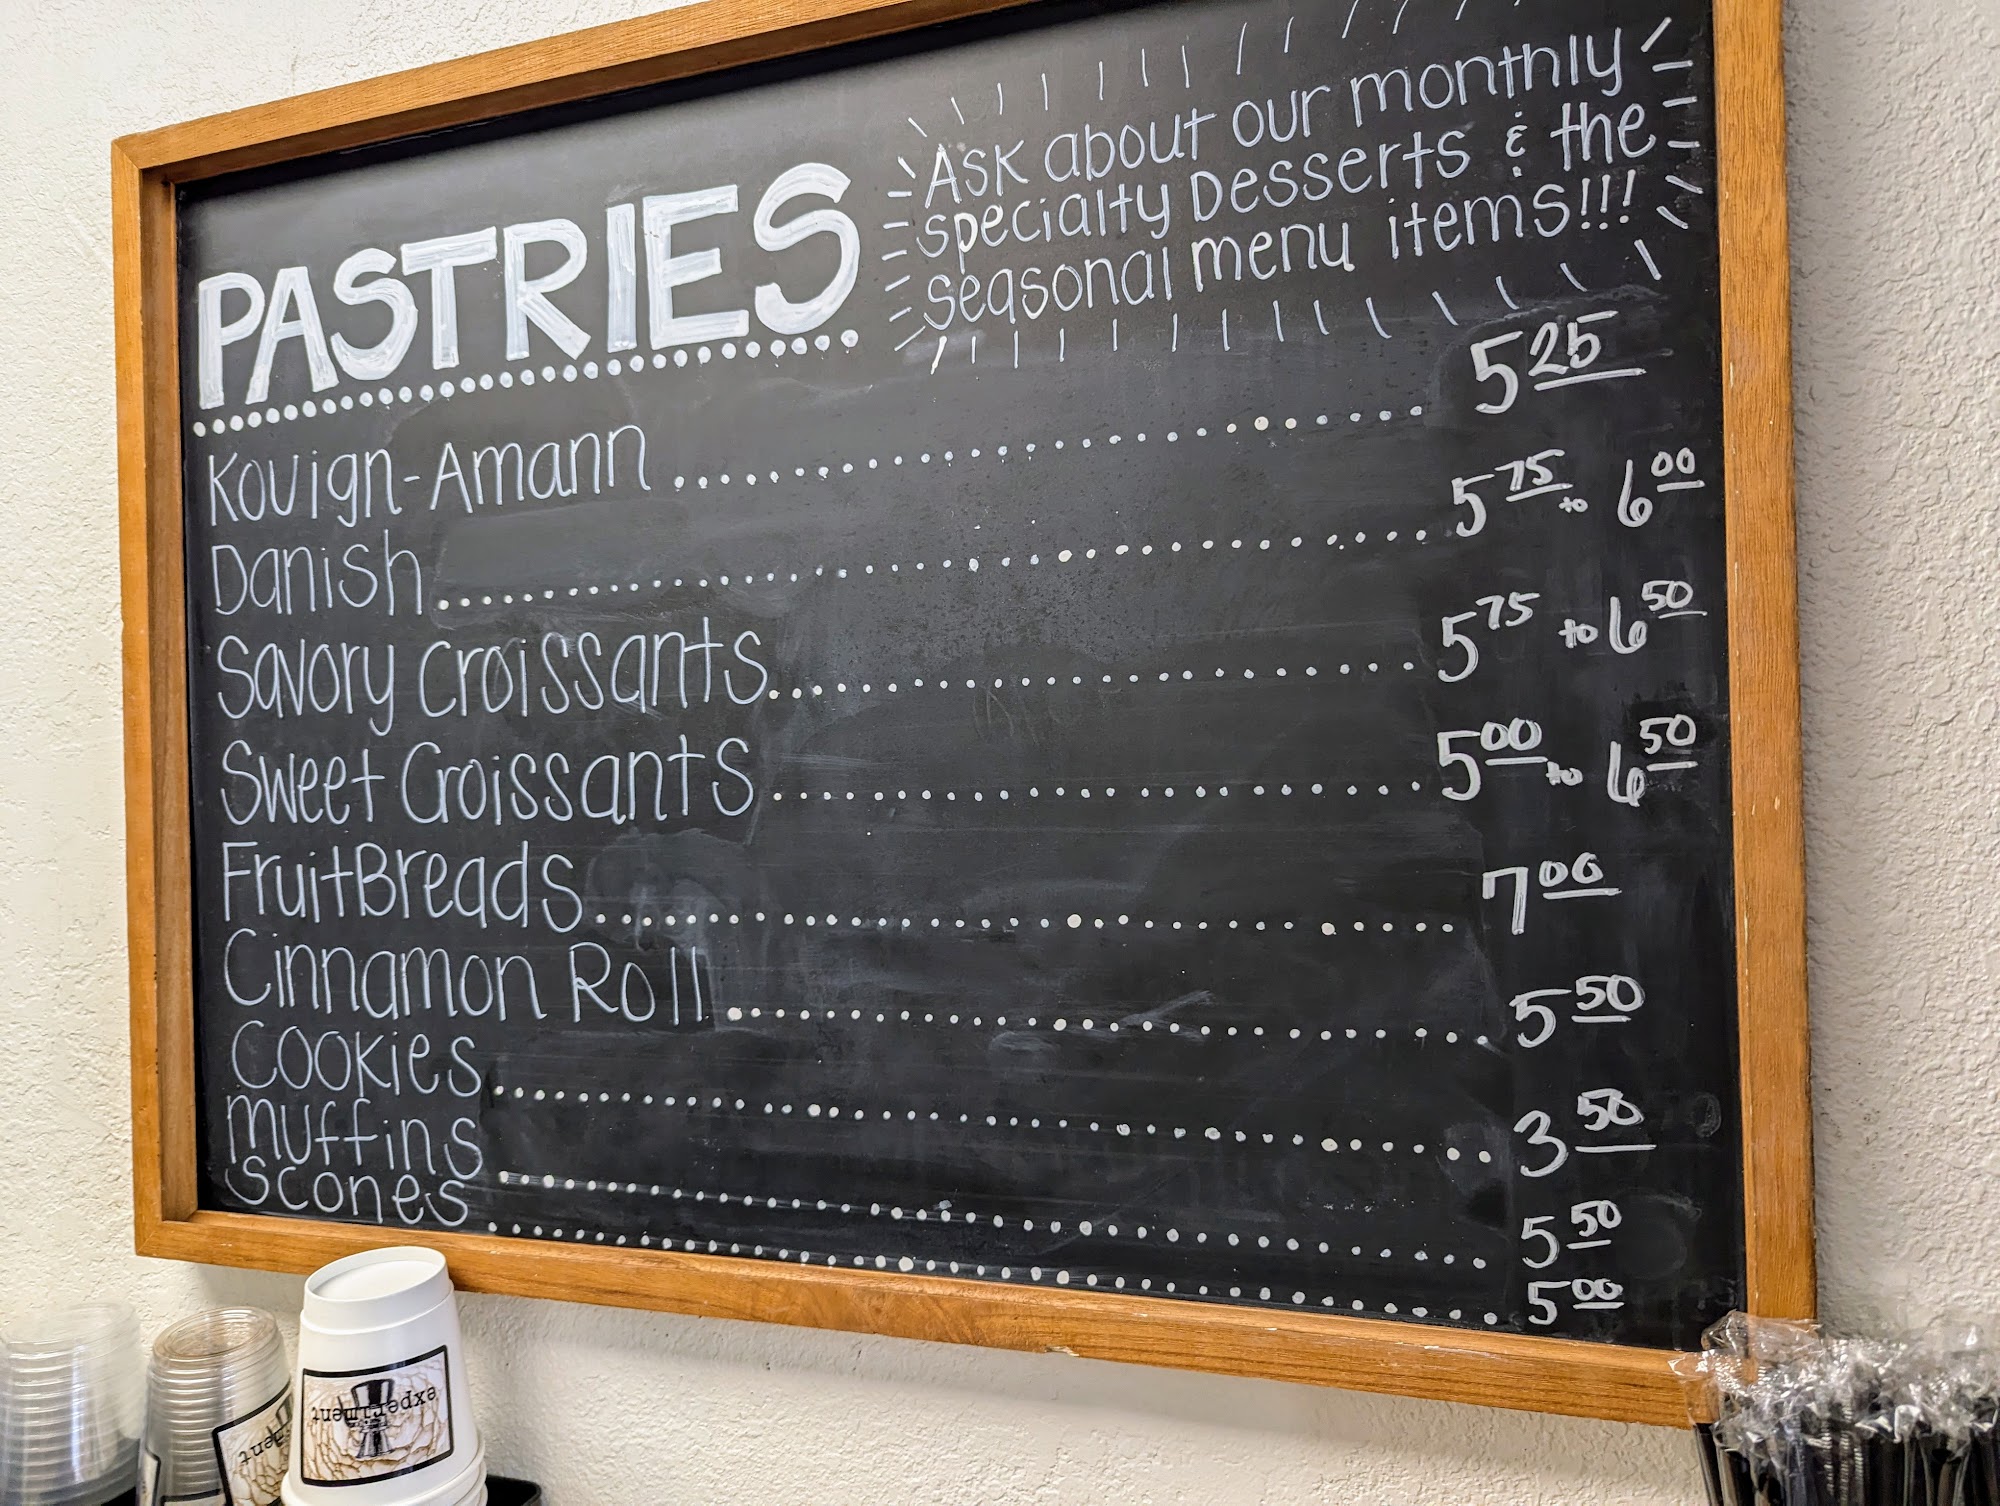 PASTRIES
Ask about our monthly
specialty Desserts & the
seasonal menu items!!!
Kouign-Amann 5.25
Danish 5.75 to 6.00
Savory Croissants 5.75 to 6.50
Sweet Croissants 5.00 to 6.50
Fruit Breads 7.00
Cinnamon Roll 5.50
Cookies 3.50
muffins 5.50
scones 5.00
experiment